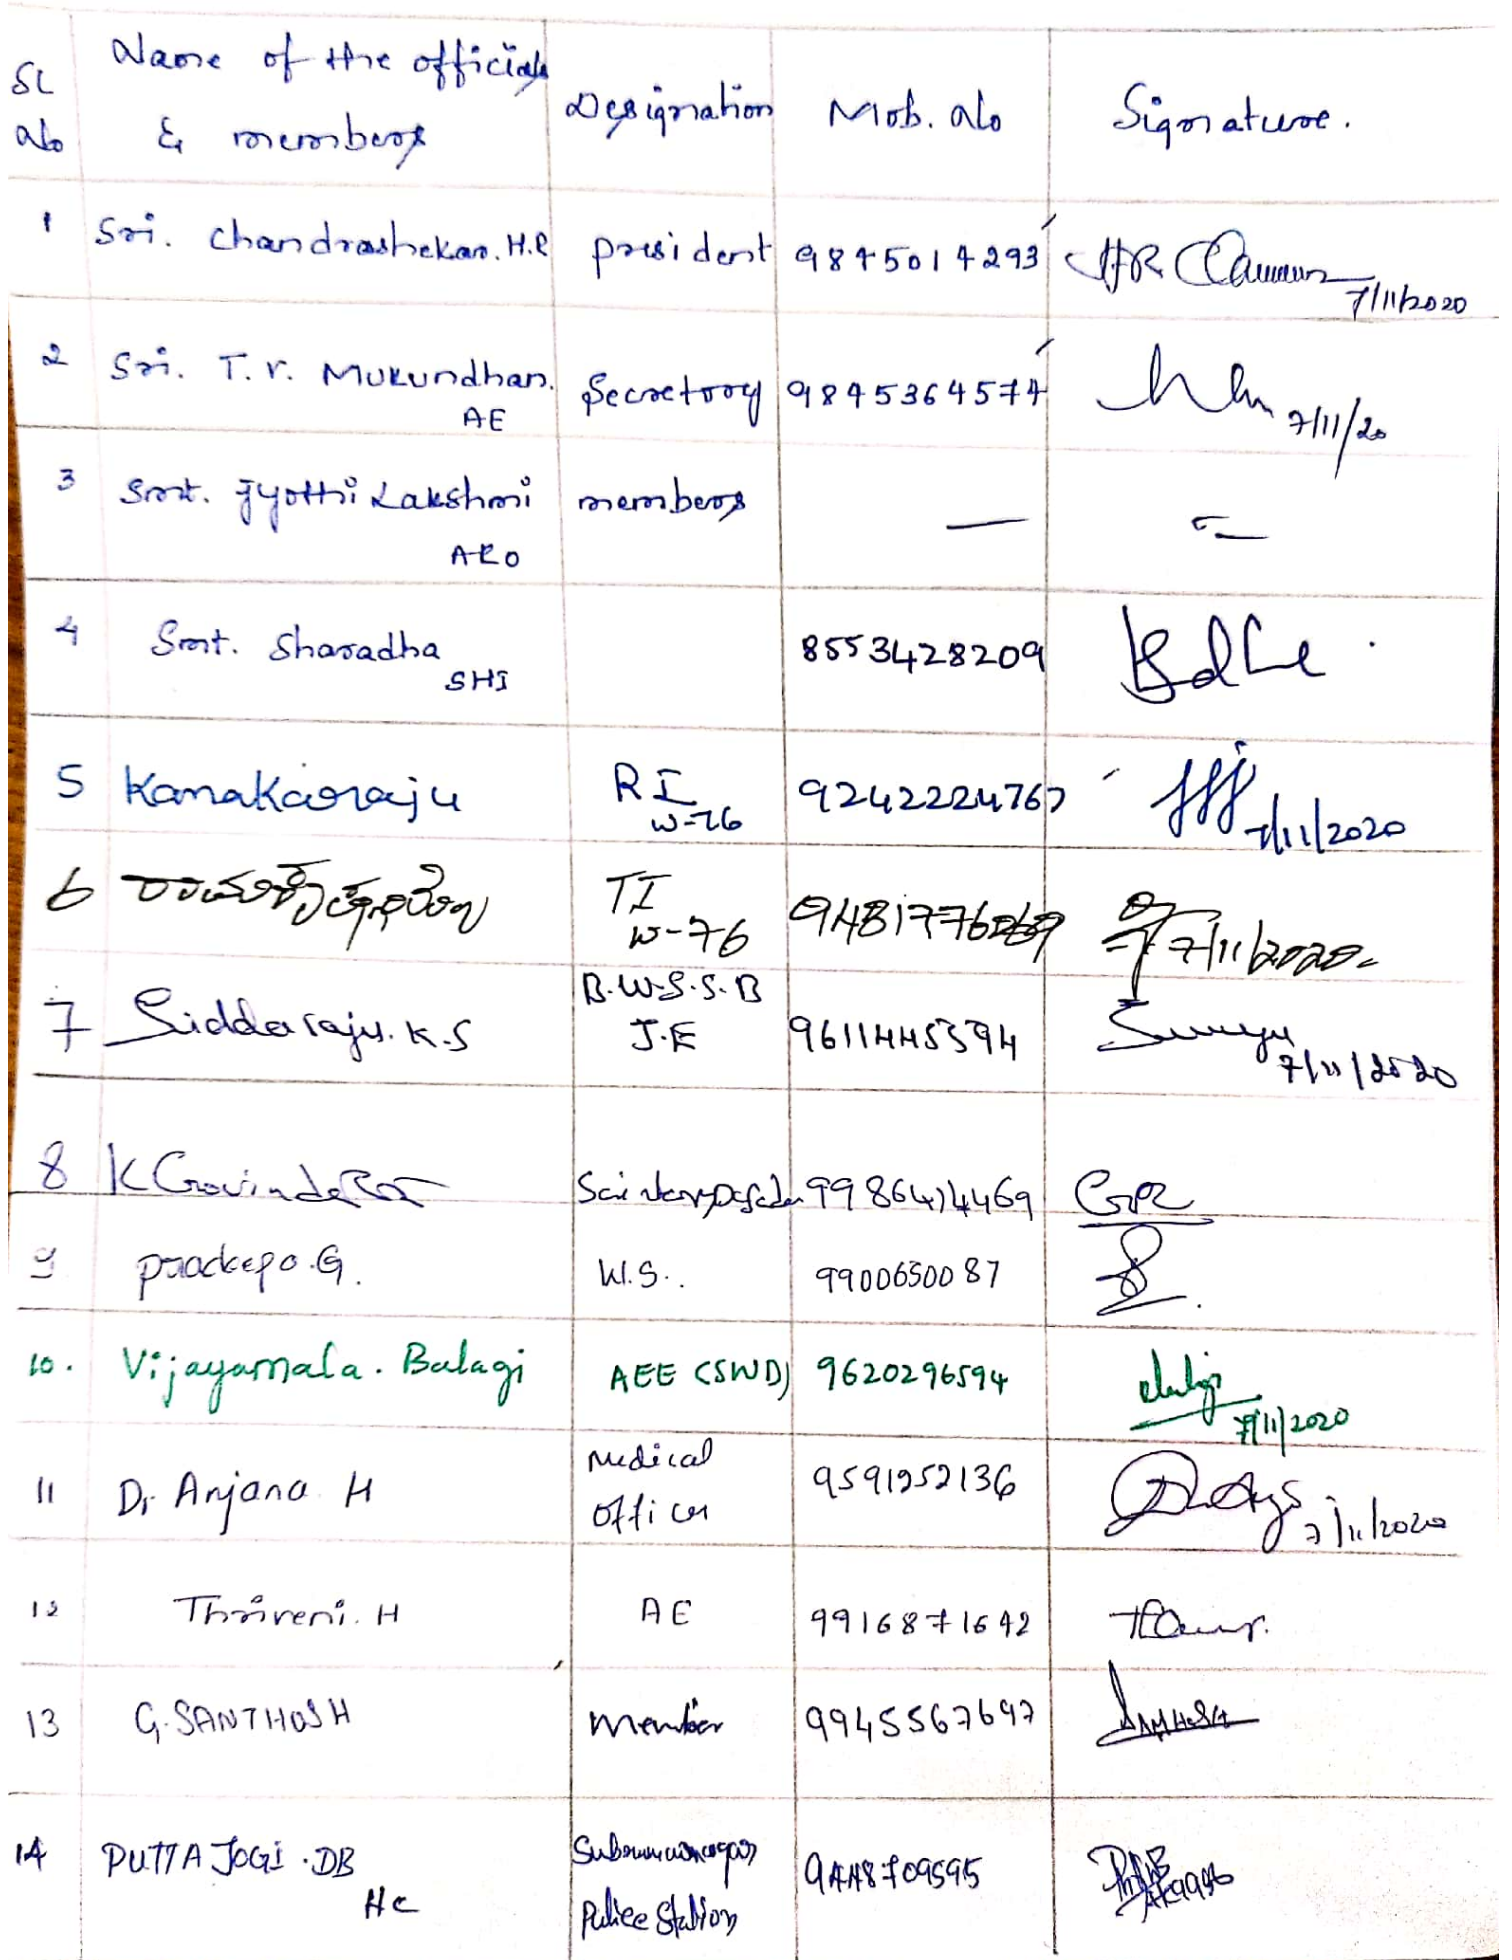 SL No Name of the officials & members Designation Mob. No Signature.
1 Sri. Chandrashekar. H.R president 9845014293 HR 7/11/2020
2 Sri. T.V. Mukundhan. AE Secretary 9845364574 7/11/20
3 Smt. Jyothi Lakshmi ARO members — —
4 Smt. Sharadha SHI 8553428209
5 Kanakaraju RI W-76 9242224767 7/11/2020
6 TI W-76 7/11/2020
7 Siddaraju. K.S B.W.S.S.B J.E 9611445394 7/11/2020
8 K Govinda 9986414469 GR
9 Pradeep. G. W.S.. 9900650087
10. Vijayamala. Balagi AEE (SWD) 9620296594 7/11/2020
11 Dr Anjana H Medical Officer 9591952136 7/11/2020
12 Thriveni. H AE 9916871642
13 G. SANTHOSH Member 9945567697
14 PUTTA JOGI. DB HC Police Station 9448709595